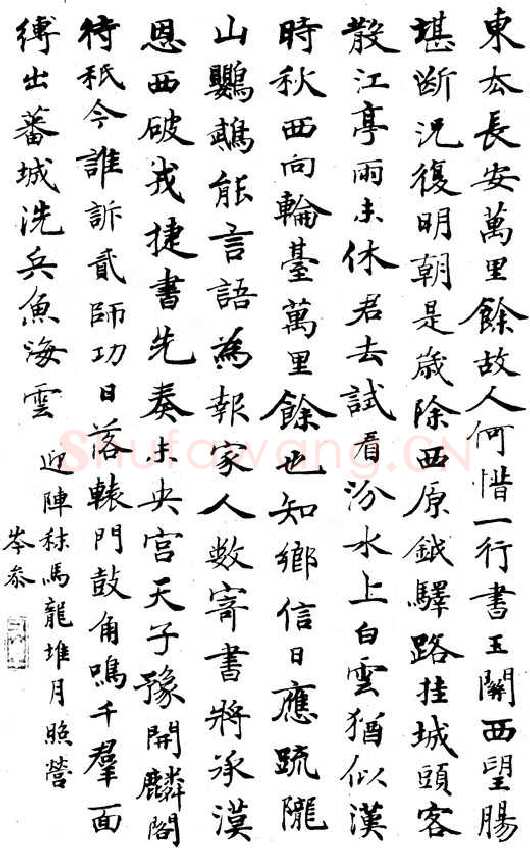 東厺長安萬里餘故人何惜一行書玉關西望腸
堪断況復明朝是歲除西原鉞驛路挂城頭客
散江亭雨未休君去試看汾水上白雲猶似漢
時秋西向輪臺萬里餘也知鄉信日應疏隴
山鸚鵡能言語為報家人數寄書將承漠
恩西破戎捷書先奏未央宮天子豫開麟閣
待秖今誰訴貳師功日落轅門鼓角鳴千羣面
縛出蕃城洗兵魚海雲
迎陣秣馬龍堆月照營
岑參
Shufawang.CN